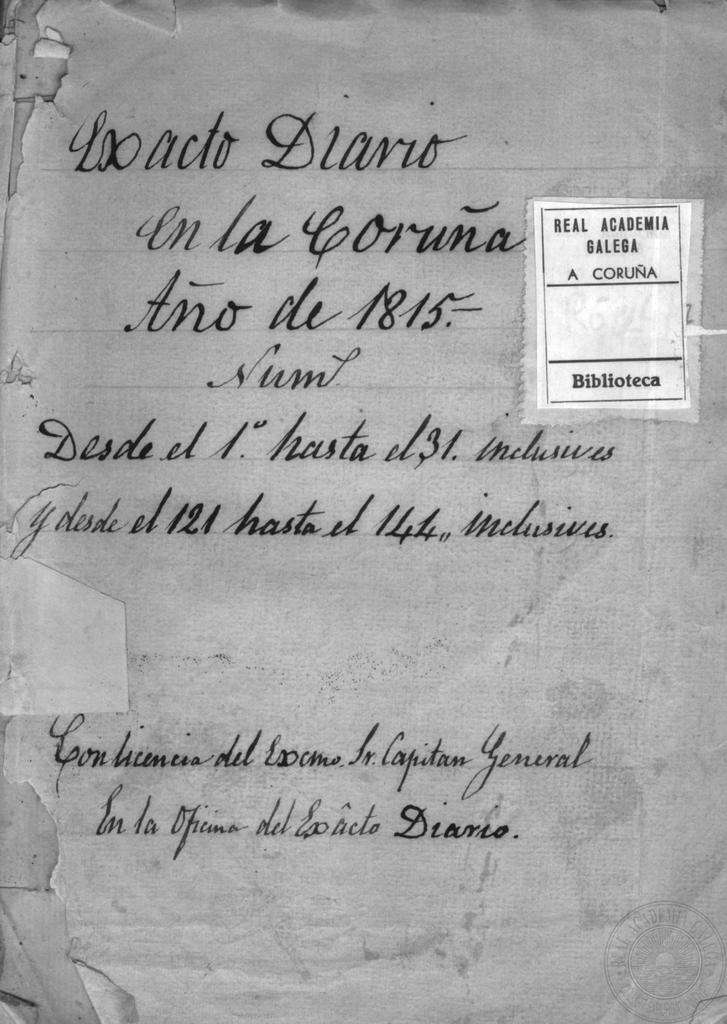 Exacto Diario
en la Coruña
Año de 1815.-
Numˢ
Desde el 1.º hasta el 31. inclusives
y desde el 121 hasta el 144,, inclusives.
REAL ACADEMIA
GALEGA
A CORUÑA
Biblioteca
Con licencia del Excmo. Sr. Capitan General
En la Oficina del Exâcto Diario.
REAL ACADEMIA GALEGA